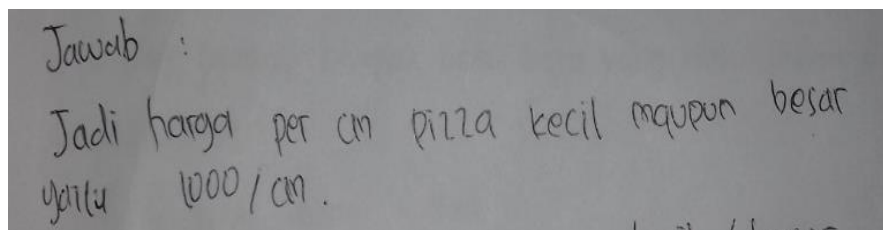 Jawab :
Jadi harga per cm pizza kecil maupun besar
yaitu 1000/cm.